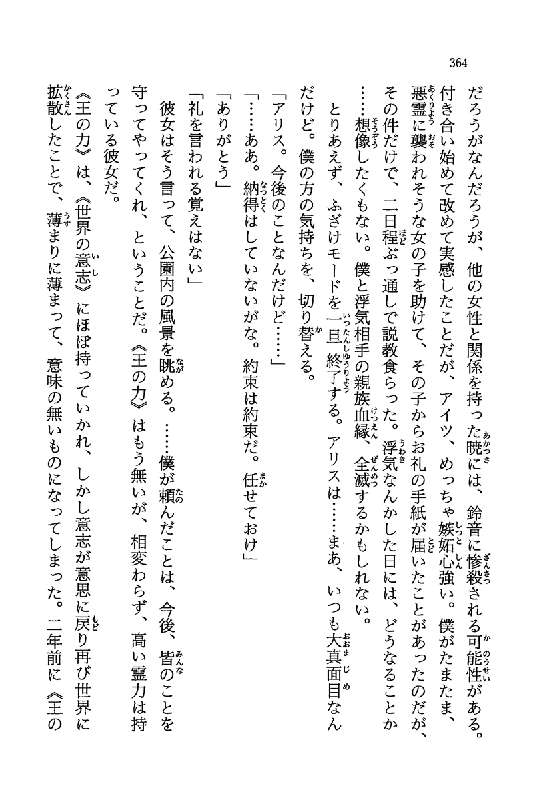 364
だろうがなんだろうが、他の女性と関係を持った暁には、鈴音に惨殺される可能性がある。
付き合い始めて改めて実感したことだが、アイツ、めっちゃ嫉妬心強い。僕がたまたま、
悪霊に襲われそうな女の子を助けて、その子からお礼の手紙が届いたことがあったのだが、
その件だけで、二日程ぶっ通しで説教食らった。浮気なんかした日には、どうなることか
……想像したくもない。僕と浮気相手の親族血縁、全滅するかもしれない。
とりあえず、ふざけモードを一旦終了する。アリスは……まあ、いつも大真面目なん
だけど。僕の方の気持ちを、切り替える。
「アリス。今後のことなんだけど……」
「……ああ。納得はしていないがな。約束は約束だ。任せておけ」
「ありがとう」
「礼を言われる覚えはない」
彼女はそう言って、公園内の風景を眺める。……僕が頼んだことは、今後、皆のことを
守ってやってくれ、ということだ。《王の力》はもう無いが、相変わらず、高い霊力は持
っている彼女だ。
《王の力》は、《世界の意志》にほぼ持っていかれ、しかし意志が意思に戻り再び世界に
拡散したことで、薄まりに薄まって、意味の無いものになってしまった。二年前に《王の